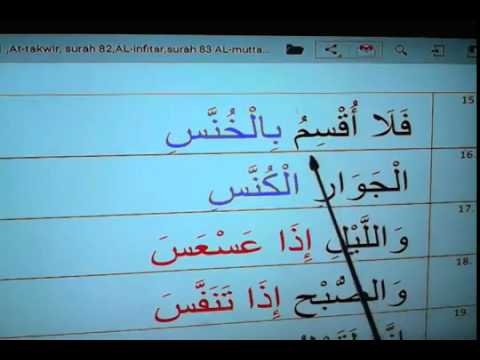 ,At-takwir, surah 82,AL-infitar,surah 83 AL-mutta...
15
فَلَا أُقْسِمُ بِالْخُنَّسِ
16.
الْجَوَارِ الْكُنَّسِ
17.
وَاللَّيْلِ إِذَا عَسْعَسَ
18.
وَالصُّبْحِ إِذَا تَنَفَّسَ
19.